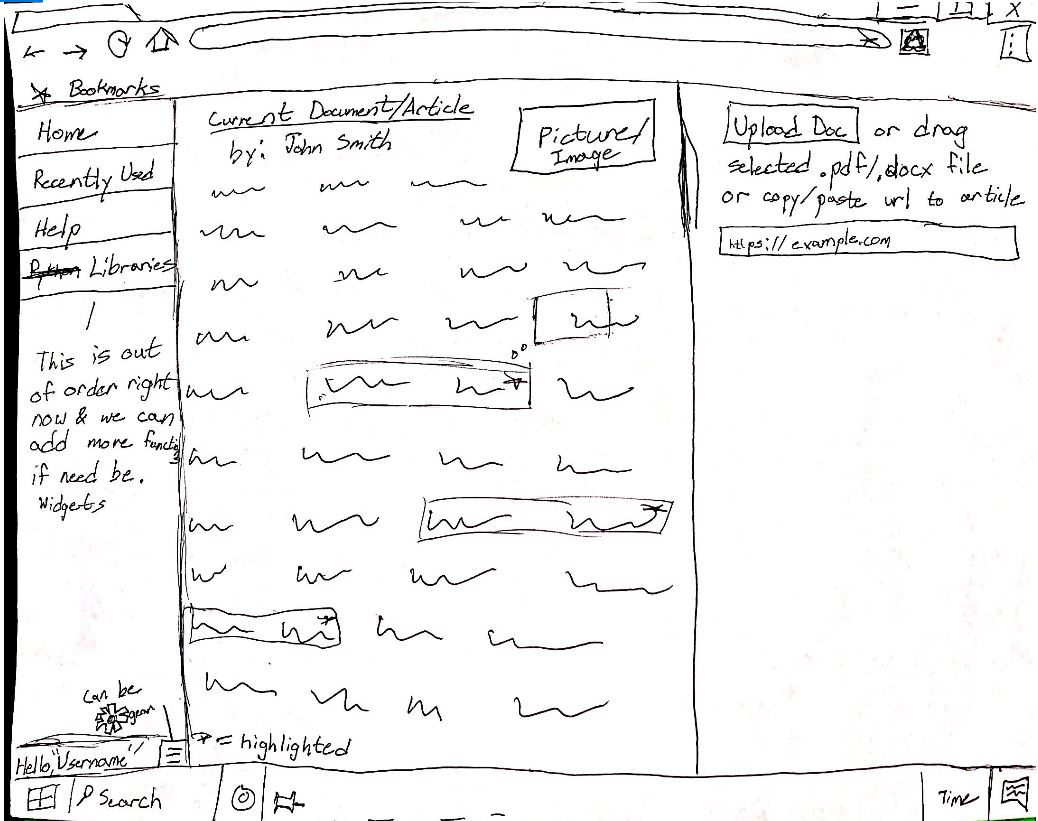 X
Bookmarks
Home
Recently Used
Help
Python Libraries
This is out
of order right
now & we can
add more functs
if need be.
Widgerts
can be
gear
Hello, "Username"
Current Document/Article
by: John Smith
Picture/
Image
* = highlighted
Upload Doc or drag
selected .pdf/.docx file
or copy/paste url to article
https://example.com
Search
Time